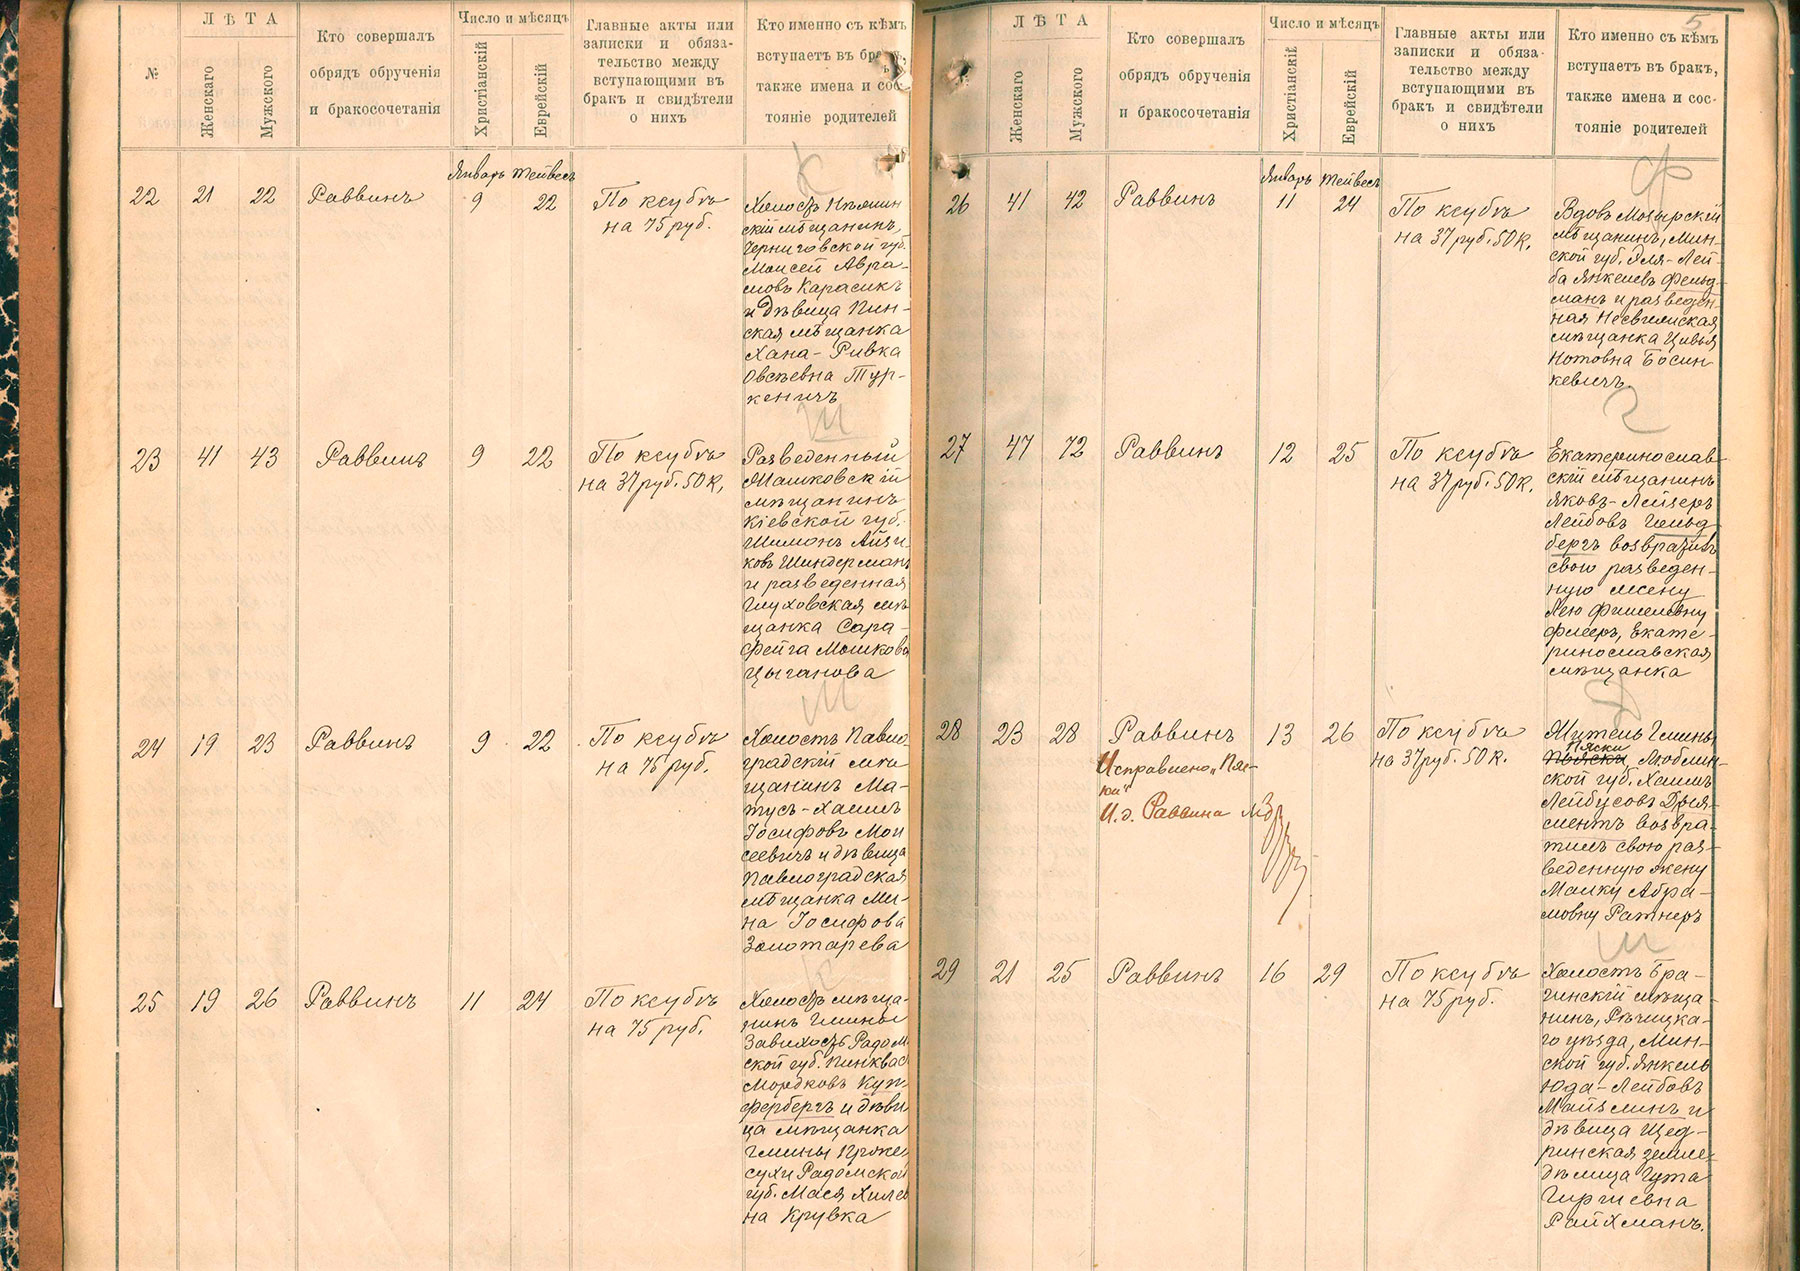 №
ЛѢТА
Женскаго
Мужского
Кто совершалъ
обрядъ обрученія
и бракосочетанія
Число и мѣсяцъ
Христіанскій
Еврейскій
Главные акты или
записки и обяза-
тельство между
вступающими въ
бракъ и свидѣтели
о нихъ
Кто именно съ кѣмъ
вступаетъ въ
также имена и сос-
тояніе родителей
Январь Тейвесъ
22 21 22 Раввинъ 9 22
По ксубѣ
на 75 руб.
К
Холостъ Нѣжин
скій мѣщанинъ,
Черниговской губ.
Моисей Авра-
мовъ Карасикъ
и дѣвица Пин-
ская мѣщанка
Хана-Ривка
Овсѣевна Тур-
кеничъ
23 41 43 Раввинъ 9 22
По ксубѣ
на 37 руб. 50 к.
Ш
Разведенный
Машковскій
мѣщанинъ
Кіевской губ.
Шимонъ Айзи-
ковъ Шиндерманъ
и разведенная
Глуховская мѣ
щанка Сара-
Фейга Мошкова
Цыганова
24 19 23 Раввинъ 9 22
По ксубѣ
на 75 руб.
М
Холостъ Павло-
градскій мѣ
щанинъ Ма-
тусъ-Хаимъ
Іосифовъ Мои
сеевичъ и дѣвица
Павлоградская
мѣщанка Ми-
на Іосифова
Золотарева
25 19 26 Раввинъ 11 24
По ксубѣ
на 75 руб.
К
Холостъ мѣща-
нинъ гмины
Завихостъ Радом
ской губ. Пинквас
Мордковъ Куп-
фербергъ и дѣви
ца мѣщанка
гмины
сухи Радомской
губ. Мася Хилев
на Крувка
5
ЛѢТА
Женскаго
Мужского
Кто совершалъ
обрядъ обрученія
и бракосочетанія
Число и мѣсяцъ
Христіанскій
Еврейскій
Главные акты или
записки и обяза-
тельство между
вступающими въ
бракъ и свидѣтели
о нихъ
Кто именно съ кѣмъ
вступаетъ въ бракъ,
также имена и сос-
тояніе родителей
Январь Тейвесъ
26 41 42 Раввинъ 11 24
По ксубѣ
на 37 руб. 50 к.
Ф
Вдовъ Мозырскій
мѣщанинъ, Мин-
ской губ. Эля-Лей-
ба Янкелевъ Фельд-
манъ и разведен-
ная Несвижская
мѣщанка Цивья
Нотовна Босин
кевичъ.
27 47 72 Раввинъ 12 25
По ксубѣ
на 37 руб. 50 к.
Г
Екатеринослав-
скій мѣщанинъ
Яковъ-Лейзеръ
Лейбовъ Гольд-
бергъ возвратилъ
свою разведен-
ную жену
Лею Фишелевну
Флееръ, Екате-
ринославская
мѣщанка
28 23 28 Раввинъ 13 26
Исправлено „Пяс-
ки“
И. д. Раввина
По ксубѣ
на 37 руб. 50 к.
Д
Житель гмины
Пяски
Люблин-
ской губ. Хаимъ
Лейбусовъ Дыя-
ментъ возвра-
тилъ свою раз-
веденную жену
Малку Абра-
мовну Ратнеръ
29 21 25 Раввинъ 16 29
По ксубѣ
на 75 руб.
М
Холостъ Бра-
гинскій мѣща-
нинъ, Рѣчицка-
го уѣзда, Мин-
ской губ. Янкель
Юда-Лейбовъ
Майзлинъ и
дѣвица Щед-
ринская земле-
дѣлица Гута
Гиршевна
Райхманъ.